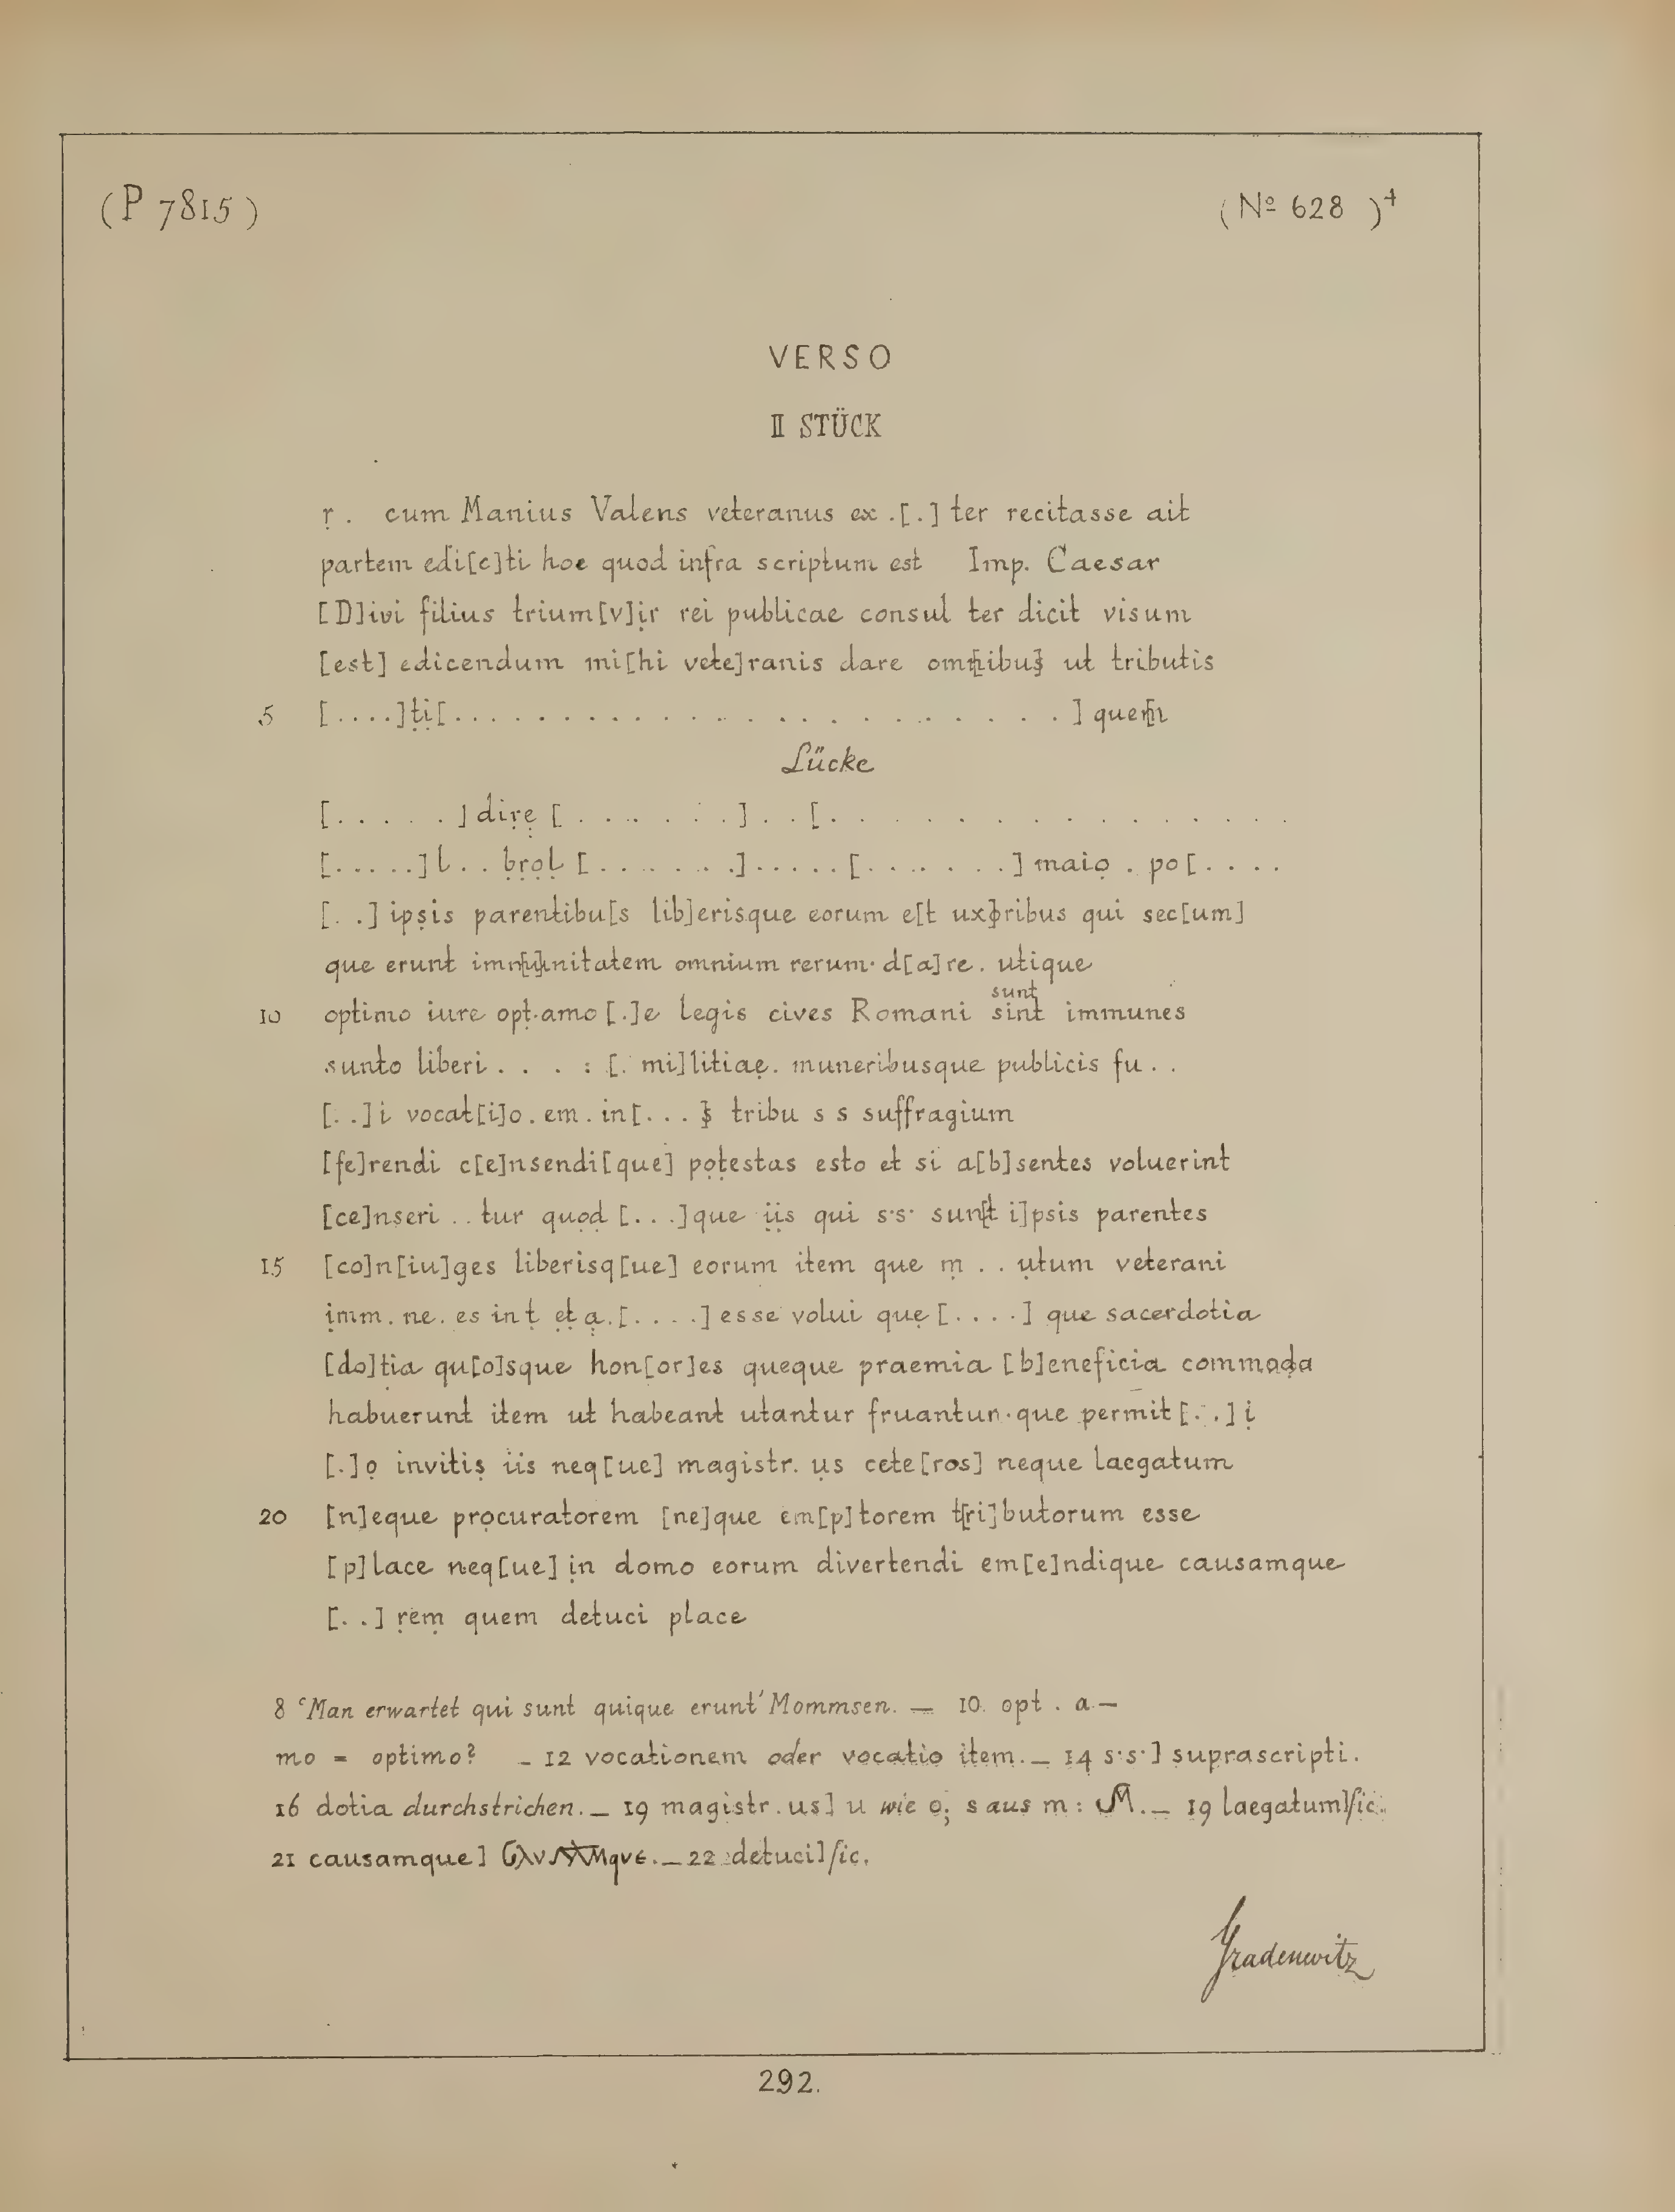 (P 7815)
(Nº 628 )⁴
VERSO
II STÜCK
ṛ . cum Manius Valens veteranus ex .[.] ter recitasse ait
partem edi[c]ti hoc quod infra scriptum est Imp. Caesar
[D]ivi filius trium[v]ịr rei publicae consul ter dicit visum
[est] edicendum mi[hi vete]ranis dare om[nibus] ut tributis
5 [....]ṭị[. . . . . . . . . . . . . . . . . . . . . . .] que[m
Lücke
[. . . . . ] dirẹ [ . . . . . . .] . . [. . . . . . . . . . . . . .
[.....] l . . ḅṛọḷ [. . . . . . .] ..... [. . . . . . .] maiọ . po[. . . .
[. .] ipṣis parentibu[s lib]erisque eorum e[t ux]oribus qui sec[um]
que erunt imm[u]nitatem omnium rerum· d[a]re . utique
sunt
10 optimo iure opṭ.amo [.]e legis cives Romani sint immunes
sunto liberi . . . : [. mi]litiaẹ. muneribusque publicis fu . .
[. .] i vocat[i]o . em . in[. . . ] s tribu s s suffragium
[fe]rendi c[e]nsendi[que] pọṭestas esto et si a[b]sentes voluerint
[ce]nṣeri .. tur quọḍ [. . .]que ịịs qui s·s· sun[t i]psis parentes
15 [co]n[iu]ges liberisq[ue] eorum item que ṃ . . ụtum veterani
ịmm . ne . es in ṭ ẹṭ ạ . [. . . .] esse volui quẹ [. . . .] que sacerdotia
[do]tia qu[o]sque hon[or]es queque praemia [b]eneficia commọḍa
habuerunt item ut habeant utantur fruantur·que permit [. .] ị
[.] ọ invitiṣ iis neq[ue] magistr. ụs cete[ros] neque laegatum
20 [n]eque prọcuratorem [ne]que em[p]torem t[ri]butorum esse
[p]lace neq[ue] ịn domo eorum divertendi em[e]ndique causamque
[. .] ṛeṃ quem detuci place
8 ‘Man erwartet qui sunt quique erunt’ Mommsen. — 10. opt . a —
mo = optimo? — 12 vocationem oder vocatio item. — 14 s·s·] suprascripti.
16 dotia durchstrichen. — 19 magistr. us] u wie o; s aus m : . — 19 laegatum] sic.
21 causamque] . — 22 detuci] sic.
Gradenwitz
292.